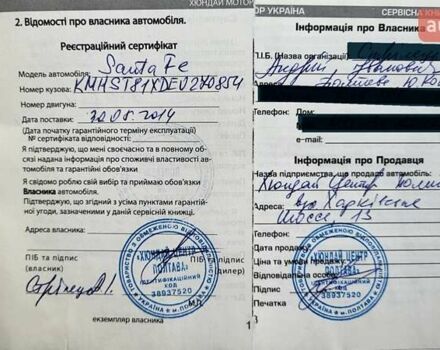 ХЮНДАЙ МОТОР
2. Відомості про власника автомобіля.
Реєстраційний сертифікат
Модель автомобіля: Santa Fe
Номер кузова: KMHST81XDEU270854
Номер двигуна:
Дата поставки: 30.05.2014
(Дата початку гарантійного терміну експлуатації)
№ сертифіката відповідності:
Я підтверджую, що мені своєчасно та в повному об-
сязі надана інформація про споживчі властивості ав-
томобіля та гарантійні обов'язки
Я свідомо роблю свій вибір та приймаю обов'язки
Власника автомобіля.
Підтверджую, що згоден з усіма пунктами гарантій-
ної угоди, зазначеними у даній сервісній книжці.
Адреса власника:
ПІБ та підпис
(власник)
ПІБ та підпис
(дилер)
М.П.
ТОВАРИСТВО З ОБМЕЖЕНОЮ ВІДПОВІДАЛЬНІСТЮ
«ХЮНДАЙ ЦЕНТР
ПОЛТАВА»
ІДЕНТИФІКАЦІЙНИЙ
КОД
38937520
УКРАЇНА м.ПОЛТАВА
екземпляр власника
1
ОР УКРАЇНА
СЕРВІСНА К
Інформація про Власника
П.І.Б. (Назва організації)
Андрій Іванович
Адреса:
Телефон: Дом:
e-mail:
Інформація про Продавця
Назва підприємства, що продало автомобіль:
Хюндай Центр Полт
Адреса: вул Харківське
шосе, 13
Телефон:
Дата продажу:
Ціна та умови продажу:
Відповідальна особа:
Підпис:
ТОВАРИСТВО З ОБМЕЖЕНОЮ ВІДПОВІДАЛЬНІСТЮ
«ХЮНДАЙ ЦЕНТР
ПОЛТАВА»
ІДЕНТИФІКАЦІЙНИЙ
КОД
38937520
УКРАЇНА м.ПОЛТАВА